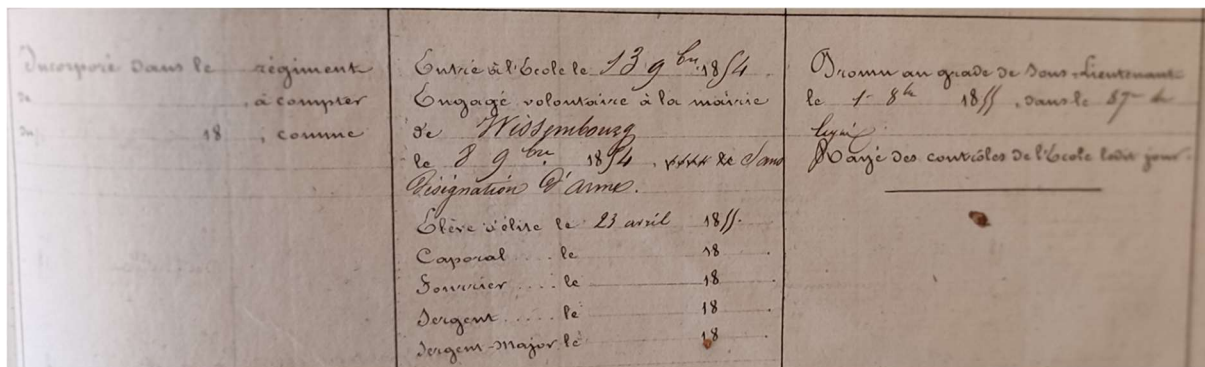 Incorporé dans le régiment
de , à compter
du 18 , comme
Entré à l'École le 13 9bre 1854
Engagé volontaire à la mairie
de Wissembourg
le 8 9bre 1854 , le Sans
désignation d'arme.
Élève d'élite le 23 avril 1855.
Caporal .... le 18 .
Fourrier .... le 18 .
Sergent ..... le 18 .
Sergent-Major le 18 .
Promu au grade de Sous-Lieutenant
le 1er 8bre 1855 , dans le 87me de
ligne.
Rayé des contrôles de l'École ledit jour.